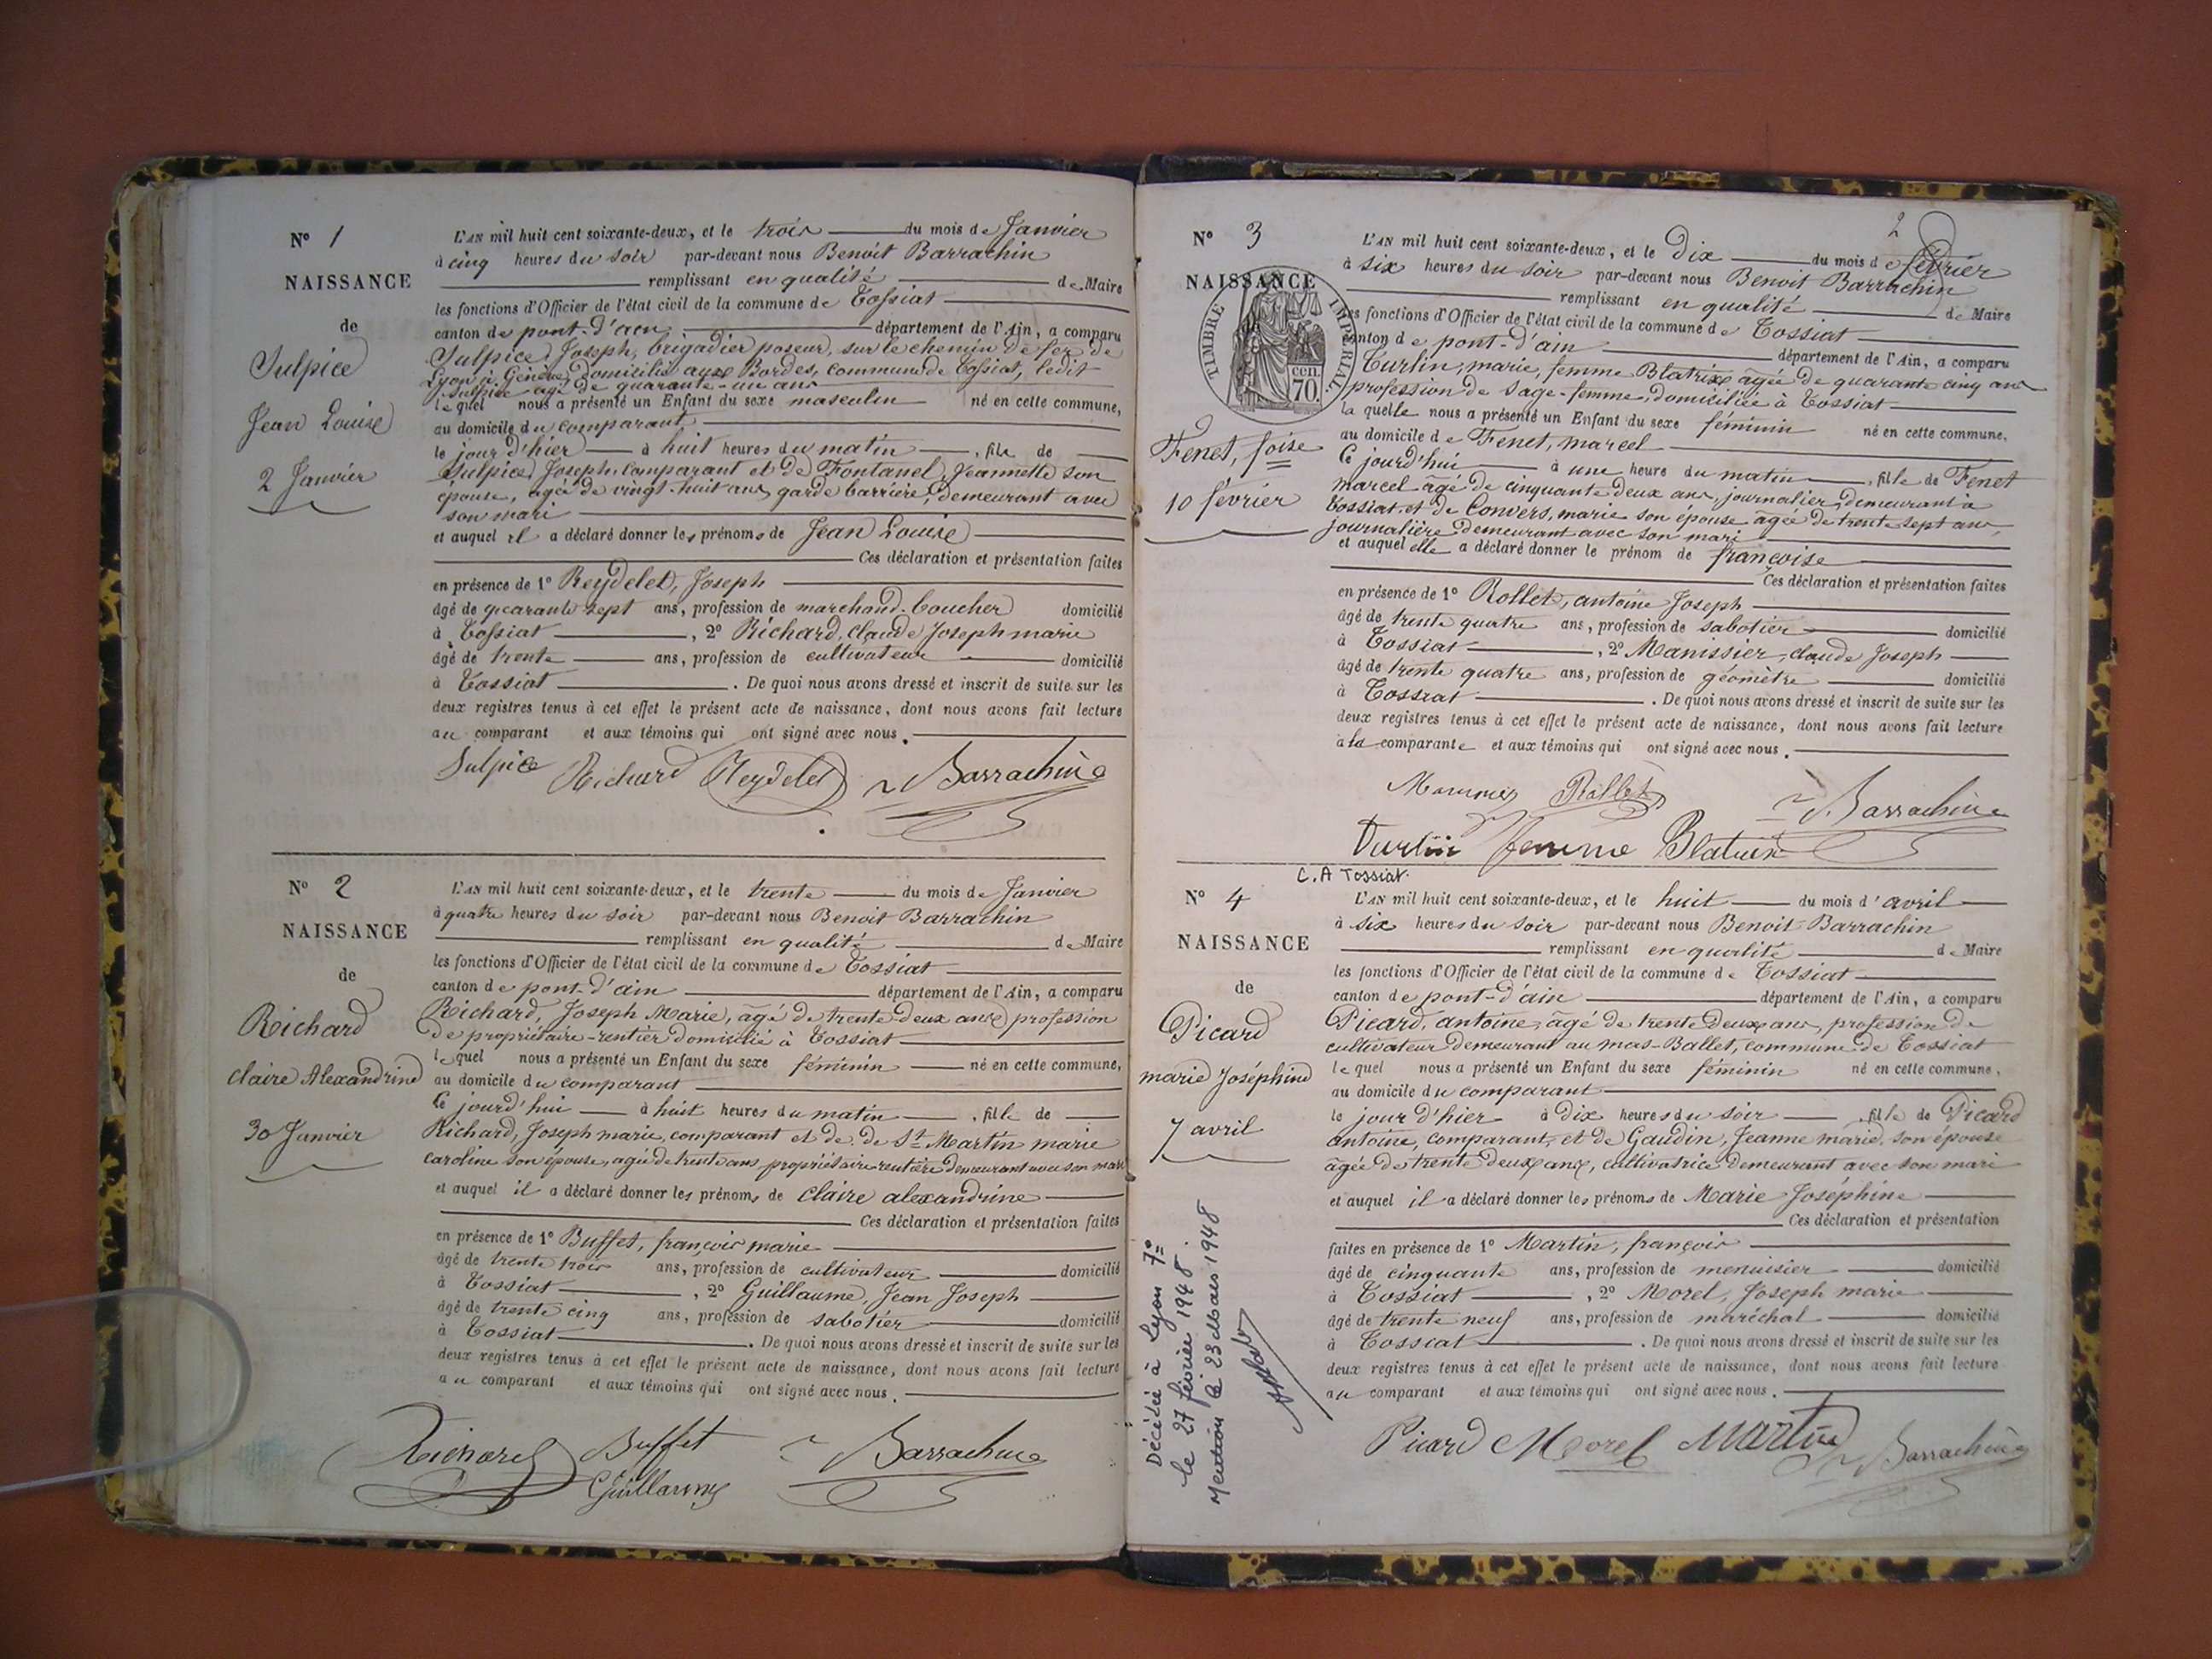 N° 1
NAISSANCE
de
Sulpice
Jean Louise
2 Janvier
L'AN mil huit cent soixante-deux, et le trois du mois de Janvier
à cinq heures du soir par-devant nous Benoit Barrachin
remplissant en qualité de Maire
les fonctions d'Officier de l'état civil de la commune de Tossiat
canton de pont-d'ain, département de l'Ain, a comparu
Sulpice, Joseph, brigadier poseur, sur le chemin de fer de
Lyon à Genève, domicilié aux Bordes, commune de Tossiat, ledit
Sulpice agé de quarante-un ans
lequel nous a présenté un Enfant du sexe masculin né en cette commune,
au domicile du comparant
le jour d'hier à huit heures du matin, fils de
Sulpice, Joseph, comparant et de Fontanel, Jeannette son
épouse, agée de vingt-huit ans, garde barrière, demeurant avec
son mari
et auquel il a déclaré donner les prénoms de Jean Louise
Ces déclaration et présentation faites
en présence de 1° Reydelet, Joseph
âgé de quarante sept ans, profession de marchand-boucher domicilié
à Tossiat, 2° Richard, claude Joseph marie
âgé de trente ans, profession de cultivateur domicilié
à Tossiat. De quoi nous avons dressé et inscrit de suite sur les
deux registres tenus à cet effet le présent acte de naissance, dont nous avons fait lecture
au comparant et aux témoins qui ont signé avec nous.
Sulpice Richard Reydelet Barrachin
N° 2
NAISSANCE
de
Richard
claire Alexandrine
30 Janvier
L'AN mil huit cent soixante-deux, et le trente du mois de Janvier
à quatre heures du soir par-devant nous Benoit Barrachin
remplissant en qualité de Maire
les fonctions d'Officier de l'état civil de la commune de Tossiat
canton de pont-d'ain département de l'Ain, a comparu
Richard, Joseph Marie, âgé de trente deux ans, profession
de propriétaire-rentier domicilié à Tossiat
lequel nous a présenté un Enfant du sexe féminin né en cette commune,
au domicile du comparant
Ce jourd'hui à huit heures du matin, fille de
Richard, Joseph marie, comparant et de de St Martin marie
caroline son épouse, agée de trente ans propriétaire rentière demeurant avec son mari
et auquel il a déclaré donner les prénoms de claire alexandrine
Ces déclaration et présentation faites
en présence de 1° Buffet, françois marie
âgé de trente trois ans, profession de cultivateur domicilié
à Tossiat, 2° Guillaume, Jean Joseph
âgé de trente cinq ans, profession de sabotier domicilié
à Tossiat. De quoi nous avons dressé et inscrit de suite sur les
deux registres tenus à cet effet le présent acte de naissance, dont nous avons fait lecture
au comparant et aux témoins qui ont signé avec nous.
Richard Buffet Barrachin
Guillaume
2
N° 3
NAISSANCE
TIMBRE IMPERIAL
70 CEN.
Fenet, foise
10 février
L'AN mil huit cent soixante-deux, et le Dix du mois de février
à six heures du soir par-devant nous Benoit Barrachin
remplissant en qualité de Maire
les fonctions d'Officier de l'état civil de la commune de Tossiat
canton de pont-d'ain département de l'Ain, a comparu
Turlin, marie, femme Blatrix âgée de quarante cinq ans
profession de sage-femme, domiciliée à Tossiat
laquelle nous a présenté un Enfant du sexe féminin né en cette commune,
au domicile de Fenet, marcel
Ce jourd'hui à une heure du matin, fille de Fenet
marcel âgé de cinquante deux ans, journalier, demeurant à
Tossiat et de Convers, marie son épouse âgée de trente sept ans,
journalière demeurant avec son mari
et auquel elle a déclaré donner le prénom de françoise
Ces déclaration et présentation faites
en présence de 1° Rollet, antoine Joseph
âgé de trente quatre ans, profession de sabotier domicilié
à Tossiat, 2° Manissier, claude Joseph
âgé de trente quatre ans, profession de géomètre domicilié
à Tossiat. De quoi nous avons dressé et inscrit de suite sur les
deux registres tenus à cet effet le présent acte de naissance, dont nous avons fait lecture
a la comparante et aux témoins qui ont signé avec nous.
Rollet Barrachin
Turlin femme Blatrix
C.A Tossiat.
N° 4
NAISSANCE
de
Picard
marie Joséphine
7 avril
L'AN mil huit cent soixante-deux, et le huit du mois d'avril
à six heures du soir par-devant nous Benoit Barrachin
remplissant en qualité de Maire
les fonctions d'Officier de l'état civil de la commune de Tossiat
canton de pont-d'ain département de l'Ain, a comparu
Picard, antoine, âgé de trente deux ans, profession de
cultivateur demeurant au mas-Ballet, commune de Tossiat
lequel nous a présenté un Enfant du sexe féminin né en cette commune,
au domicile du comparant
le jour d'hier à dix heures du soir, fille de Picard
antoine, comparant, et de Gaudin, Jeanne marie, son épouse
âgée de trente deux ans, cultivatrice demeurant avec son mari
et auquel il a déclaré donner les prénoms de Marie Joséphine
Ces déclaration et présentation
faites en présence de 1° Martin, françois
âgé de cinquante ans, profession de menuisier domicilié
à Tossiat, 2° Morel, Joseph marie
âgé de trente neuf ans, profession de maréchal domicilié
à Tossiat. De quoi nous avons dressé et inscrit de suite sur les
deux registres tenus à cet effet le présent acte de naissance, dont nous avons fait lecture
au comparant et aux témoins qui ont signé avec nous.
Picard Morel Martin Barrachin
Décédée à Lyon 7e
le 27 février 1948.
Mention le 23 Mars 1948